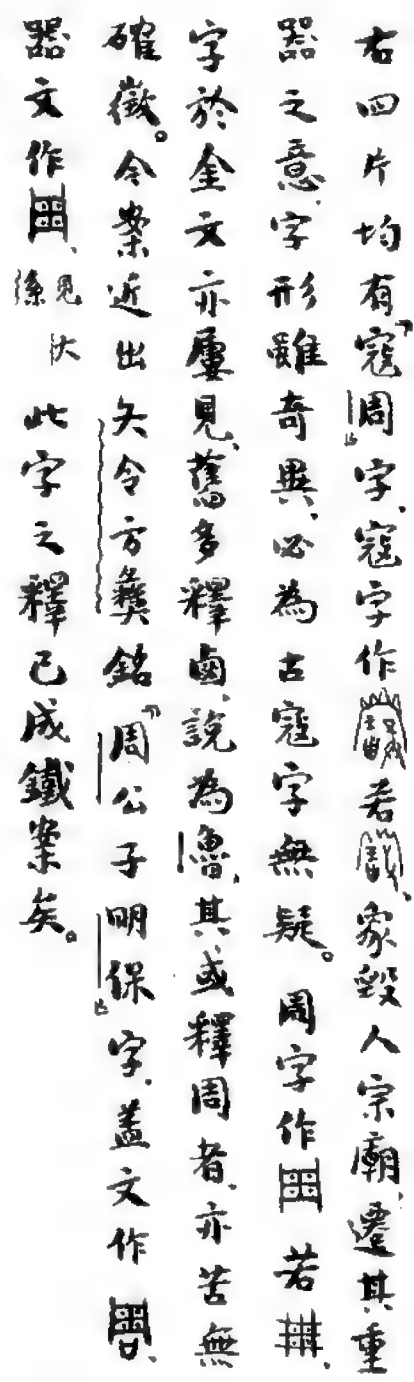 右四片均有「寇周」字、寇字作若、象毀人宗廟、遷其重
器之意、字形雖奇異、必為古寇字無疑。周字作若、
字於金文亦屢見、舊多釋鹵、說為魯、其或釋周者、亦苦無
確徵。今案近出矢令方彝銘「周公子明保」字、蓋文作、
器文作、見沇後此字之釋已成鐵案矣。